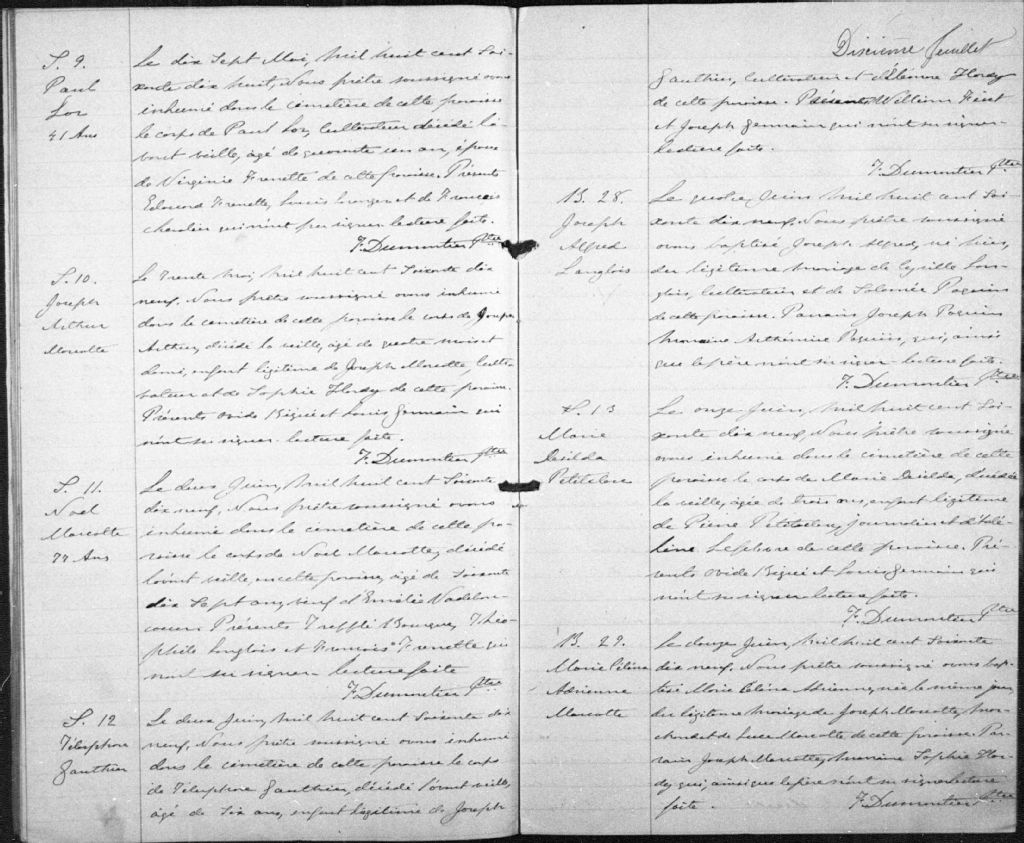 S. 9.
Paul
41 Ans
Le dix Sept Mai, Mil huit cent Soi-
xante dix huit, Nous prêtre soussigné avons
inhumé dans le cimetière de cette paroisse
le corps de Paul cultivateur décédé l'a-
vant veille, âgé de quarante un an, époux
de Virginie Frenette de cette paroisse. Présents
Edouard Frenette, Louis et de François
qui n'ont pu signer lecture faite.
F. Dumontier Ptre
S. 10.
Joseph
Arthur
Marcotte
Le Trente Mai, Mil huit cent Soixante dix
neuf, Nous prêtre soussigné avons inhumé
dans le cimetière de cette paroisse le corps de Joseph
Arthur, décédé la veille, âgé de quatre mois et
demi, enfant légitime de Joseph Marcotte, Culti-
vateur et de Sophie Hardy de cette paroisse.
Présents Ovide Biguè et Louis Germain qui
n'ont su signer. lecture faite.
F. Dumontier Ptre
S. 11.
Noël
Marcotte
77 Ans
Le deux Juin, Mil huit cent Soixante
dix neuf, Nous prêtre soussigné avons
inhumé dans le cimetière de cette pa-
roisse le corps de Noël Marcotte, décédé
l'avant veille, en cette paroisse, âgé de Soixante
dix Sept ans, veuf d'Emélie
Présents Trefflé Bourque, Théo-
phile Langlois et François Frenette qui
n'ont su signer. lecture faite
F. Dumontier Ptre
S. 12
Télesphore
Gauthier
Le deux Juin, Mil huit cent Soixante dix
neuf, Nous prêtre soussigné avons inhumé
dans le cimetière de cette paroisse le corps
de Télesphore Gauthier, décédé l'avant veille,
âgé de Six ans, enfant légitime de Joseph
Dixième feuillet
Gauthier, Cultivateur et d'Eléonore Hardy
de cette paroisse. Présents William
et Joseph Germain qui n'ont su signer
lecture faite.
F. Dumontier Ptre
B. 28.
Joseph
Alfred
Langlois
Le quatre Juin, Mil huit cent Soi-
xante dix neuf, Nous prêtre soussigné
avons baptisé Joseph Alfred, né hier,
du légitime mariage de Cyrille Lan-
glois, Cultivateur et de Salomée Paquin
de cette paroisse. Parrain Joseph Paquin
marraine Arthémise Paquin, qui, ainsi
que le père n'ont su signer. lecture faite.
F. Dumontier Ptre
S. 13
Marie
Desilda
Petitclerc
Le onze Juin, Mil huit cent Soi-
xante dix neuf, Nous prêtre soussigné
avons inhumé dans le cimetière de cette
paroisse le corps de Marie Desilda, décédée
la veille, âgée de trois ans, enfant légitime
de Pierre Petitclerc, Journalier et d'Adé-
line Lefebvre de cette paroisse. Pré-
sents Ovide Biguè et Louis Germain qui
n'ont su signer lecture faite.
F. Dumontier Ptre
B. 29.
Marie Celina
Adrienne
Marcotte
Le douze Juin, Mil huit cent Soixante
dix neuf, Nous prêtre soussigné avons bap-
tisé Marie Célina Adrienne, née le même jour,
du légitime mariage de Joseph Marcotte, Mar-
chand et de Luce Marcotte de cette paroisse. Par-
rain Joseph Marcotte, marraine Sophie Har-
dy, qui, ainsi que le père n'ont su signer lecture
faite.
F. Dumontier Ptre